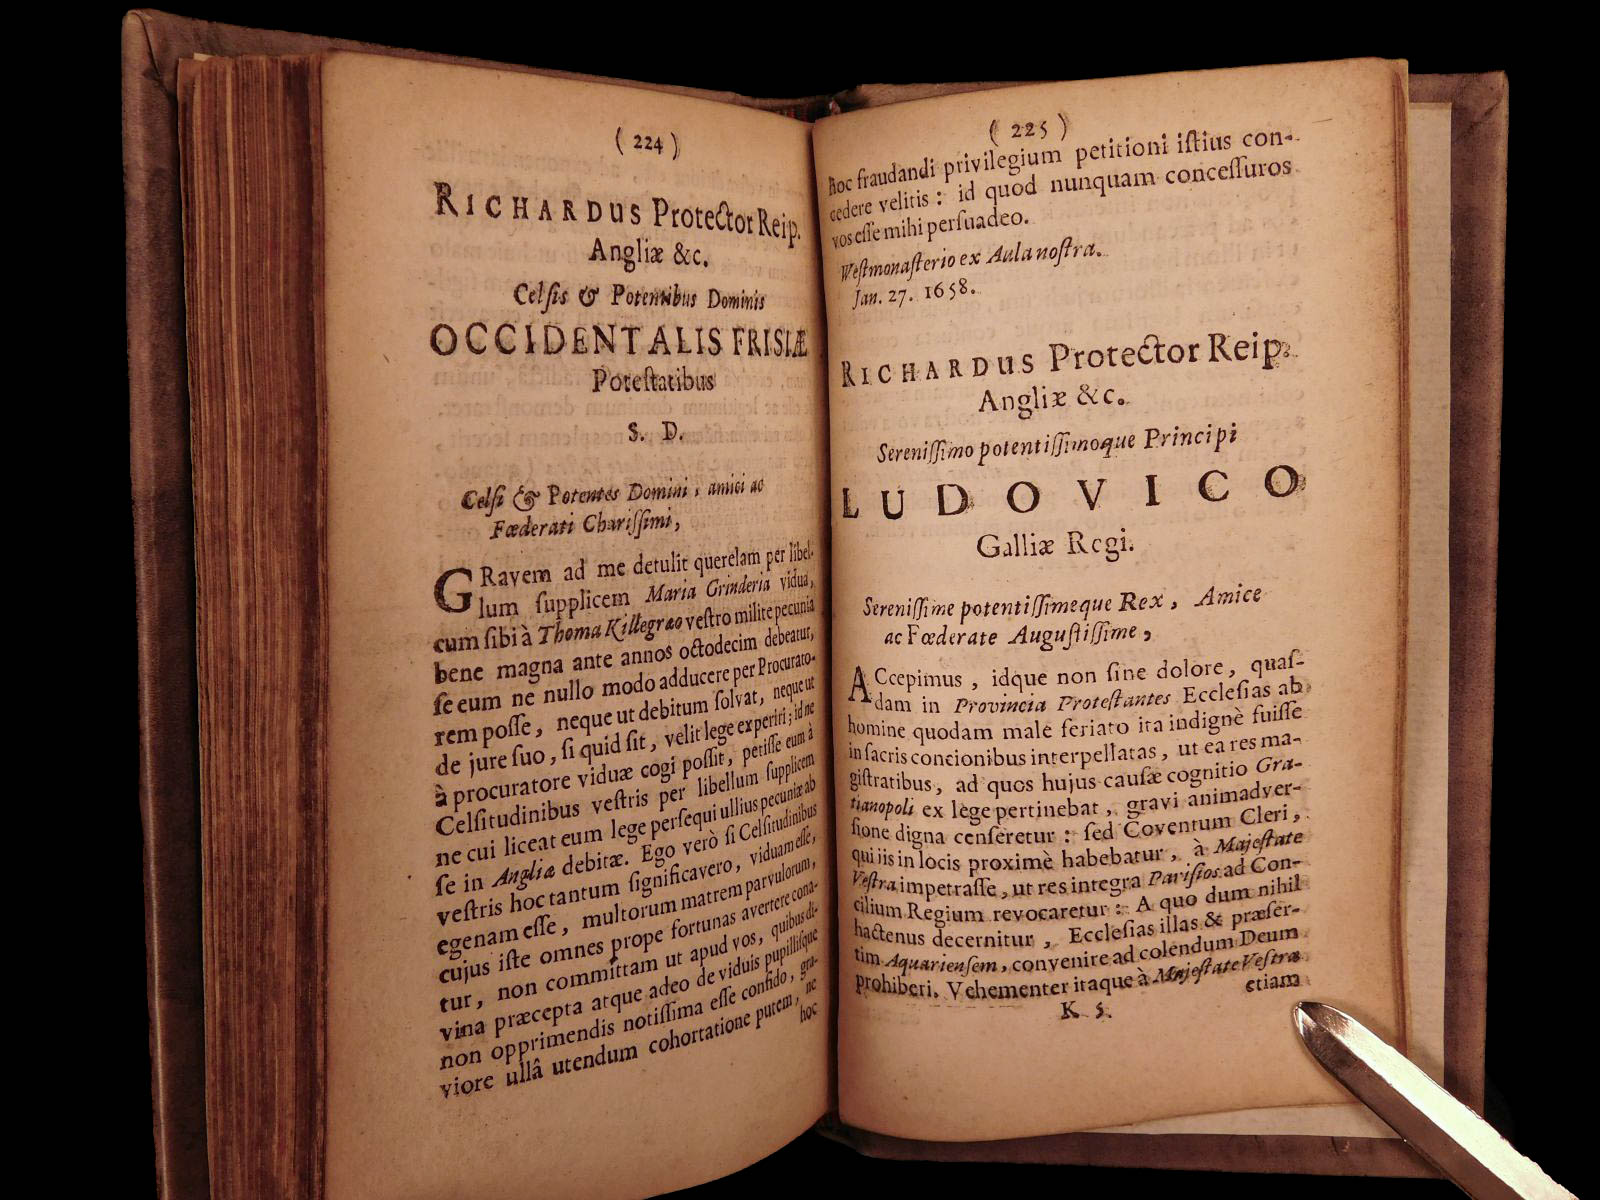 ( 224 )
RICHARDUS Protector Reip.
Angliæ &c.
Celsis & Potentibus Dominis
OCCIDENTALIS FRISIÆ
Potestatibus
S. D.
Celsi & Potentes Domini, amici ac
Fœderati Charissimi,
GRavem ad me detulit querelam per libel-
lum supplicem Maria Grinderia vidua,
cum sibi à Thoma Killegrao vestro milite pecunia
bene magna ante annos octodecim debeatur,
se eum ne nullo modo adducere per Procurato-
rem posse, neque ut debitum solvat, neque ut
de jure suo, si quid sit, velit lege experiri; id ne
à procuratore viduæ cogi possit, petisse eum à
Celsitudinibus vestris per libellum supplicem
ne cui liceat eum lege persequi ullius pecuniæ ab
se in Anglia debitæ. Ego verò si Celsitudinibus
vestris hoc tantum significavero, viduam esse,
egenam esse, multorum matrem parvulorum,
cujus iste omnes prope fortunas avertere cona-
tur, non committam ut apud vos, quibus di-
vina præcepta atque adeo de viduis pupillisque
non opprimendis notissima esse confido, gra-
viore ullâ utendum cohortatione putem, ne
hoc
( 225 )
hoc fraudandi privilegium petitioni istius con-
cedere velitis : id quod nunquam concessuros
vos esse mihi persuadeo.
Westmonasterio ex Aula nostra.
Jan. 27. 1658.
RICHARDUS Protector Reip.
Angliæ &c.
Serenissimo potentissimoque Principi
LUDOVICO
Galliæ Regi.
Serenissime potentissimeque Rex, Amice
ac Fœderate Augustissime,
ACcepimus, idque non sine dolore, quas-
dam in Provincia Protestantes Ecclesias ab
homine quodam male feriato ita indignè fuisse
in sacris concionibus interpellatas, ut ea res ma-
gistratibus, ad quos hujus causæ cognitio Gra-
tianopoli ex lege pertinebat, gravi animadver-
sione digna censeretur : sed Coventum Cleri,
qui iis in locis proximè habebatur, à Majestate
Vestra impetrasse, ut res integra Parisios ad Con-
cilium Regium revocaretur : A quo dum nihil
hactenus decernitur, Ecclesias illas & præser-
tim Aquariensem, convenire ad colendum Deum
prohiberi. Vehementer itaque à Majestate Vestra
K 5. etiam